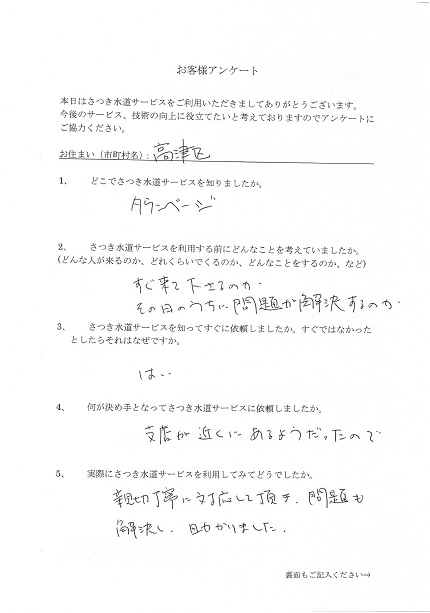 お客様アンケート
本日はさつき水道サービスをご利用いただきましてありがとうございます。
今後のサービス、技術の向上に役立てたいと考えておりますのでアンケートに
ご協力ください。
お住まい（市町村名）：高津区
1、 どこでさつき水道サービスを知りましたか。
タウンページ
2、 さつき水道サービスを利用する前にどんなことを考えていましたか。
（どんな人が来るのか、どれくらいでくるのか、どんなことをするのか、など）
すぐ来て下さるのか．
その日のうちに問題が解決するのか．
3、 さつき水道サービスを知ってすぐに依頼しましたか。すぐではなかった
としたらそれはなぜですか。
はい
4、 何が決め手となってさつき水道サービスに依頼しましたか。
支店が近くにあるようだったので
5、 実際にさつき水道サービスを利用してみてどうでしたか。
親切丁寧に対応して頂き、問題も
解決し、助かりました．
裏面もご記入ください⇒